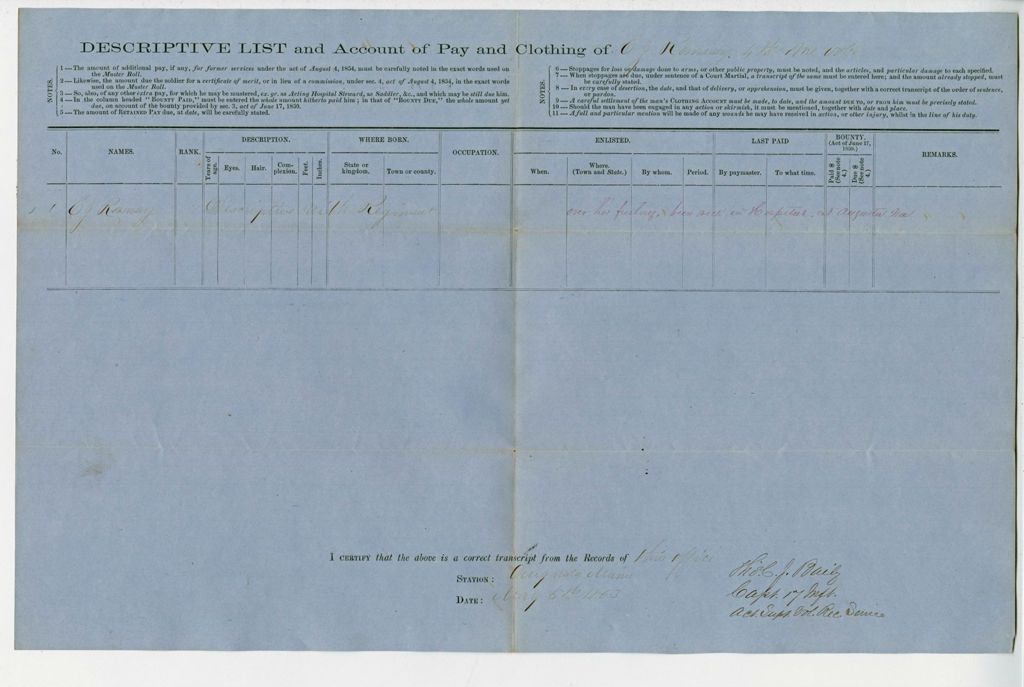 DESCRIPTIVE LIST and Account of Pay and Clothing of O J 4th Me
NOTES.
1 — The amount of additional pay, if any, for former services under the act of August 4, 1854, must be carefully noted in the exact words used on
the Muster Roll.
2 — Likewise, the amount due the soldier for a certificate of merit, or in lieu of a commission, under sec. 4, act of August 4, 1854, in the exact words
used on the Muster Roll.
3 — So, also, of any other extra pay, for which he may be mustered, ex. gr. as Acting Hospital Steward, as Saddler, &c., and which may be still due him.
4 — In the column headed "BOUNTY PAID," must be entered the whole amount hitherto paid him; in that of "BOUNTY DUE," the whole amount yet
due, on account of the bounty provided by sec. 3, act of June 17, 1850.
5 — The amount of RETAINED PAY due, at date, will be carefully stated.
NOTES.
6 — Stoppages for loss or damage done to arms, or other public property, must be noted, and the articles, and particular damage to each specified.
7 — When stoppages are due, under sentence of a Court Martial, a transcript of the same must be entered here; and the amount already stopped, must
be carefully stated.
8 — In every case of desertion, the date, and that of delivery, or apprehension, must be given, together with a correct transcript of the order of sentence,
or pardon.
9 — A careful settlement of the man's CLOTHING ACCOUNT must be made, to date, and the amount DUE TO, or FROM HIM must be precisely stated.
10 — Should the man have been engaged in any action or skirmish, it must be mentioned, together with date and place.
11 — A full and particular mention will be made of any wounds he may have received in action, or other injury, whilst in the line of his duty.
No. NAMES. RANK. DESCRIPTION. WHERE BORN. OCCUPATION. ENLISTED. LAST PAID BOUNTY. (Act of June 17, 1850.) REMARKS.
Years of age. Eyes. Hair. Complexion. Feet. Inches. State or kingdom. Town or county. When. Where. (Town and State.) By whom. Period. By paymaster. To what time. Paid $ (See note 4.) Due $ (See note 4.)
1 O J Descriptive List with Regiment over his furlough been sick in Hospital at Augusta Me
I CERTIFY that the above is a correct transcript from the Records of this office
STATION: Augusta Maine
DATE: May 6th 1863
Thos C. J. Baily
Capt. 17 Inft.
Act Supt Vol Rec Service